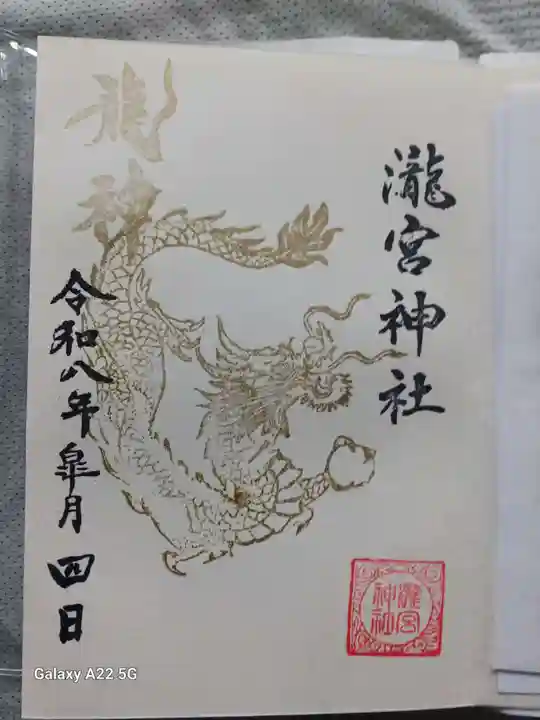 瀧宮神社
龍神
令和八年皐月四日
瀧宮
神社
Galaxy A22 5G